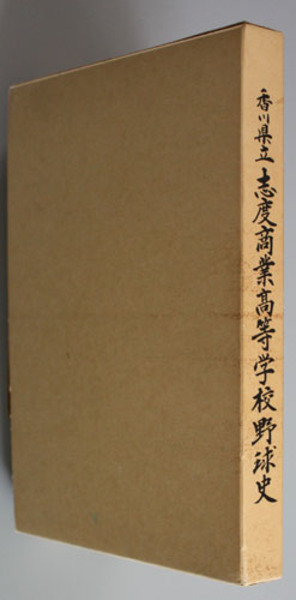 香川県立志度商業高等学校野球史